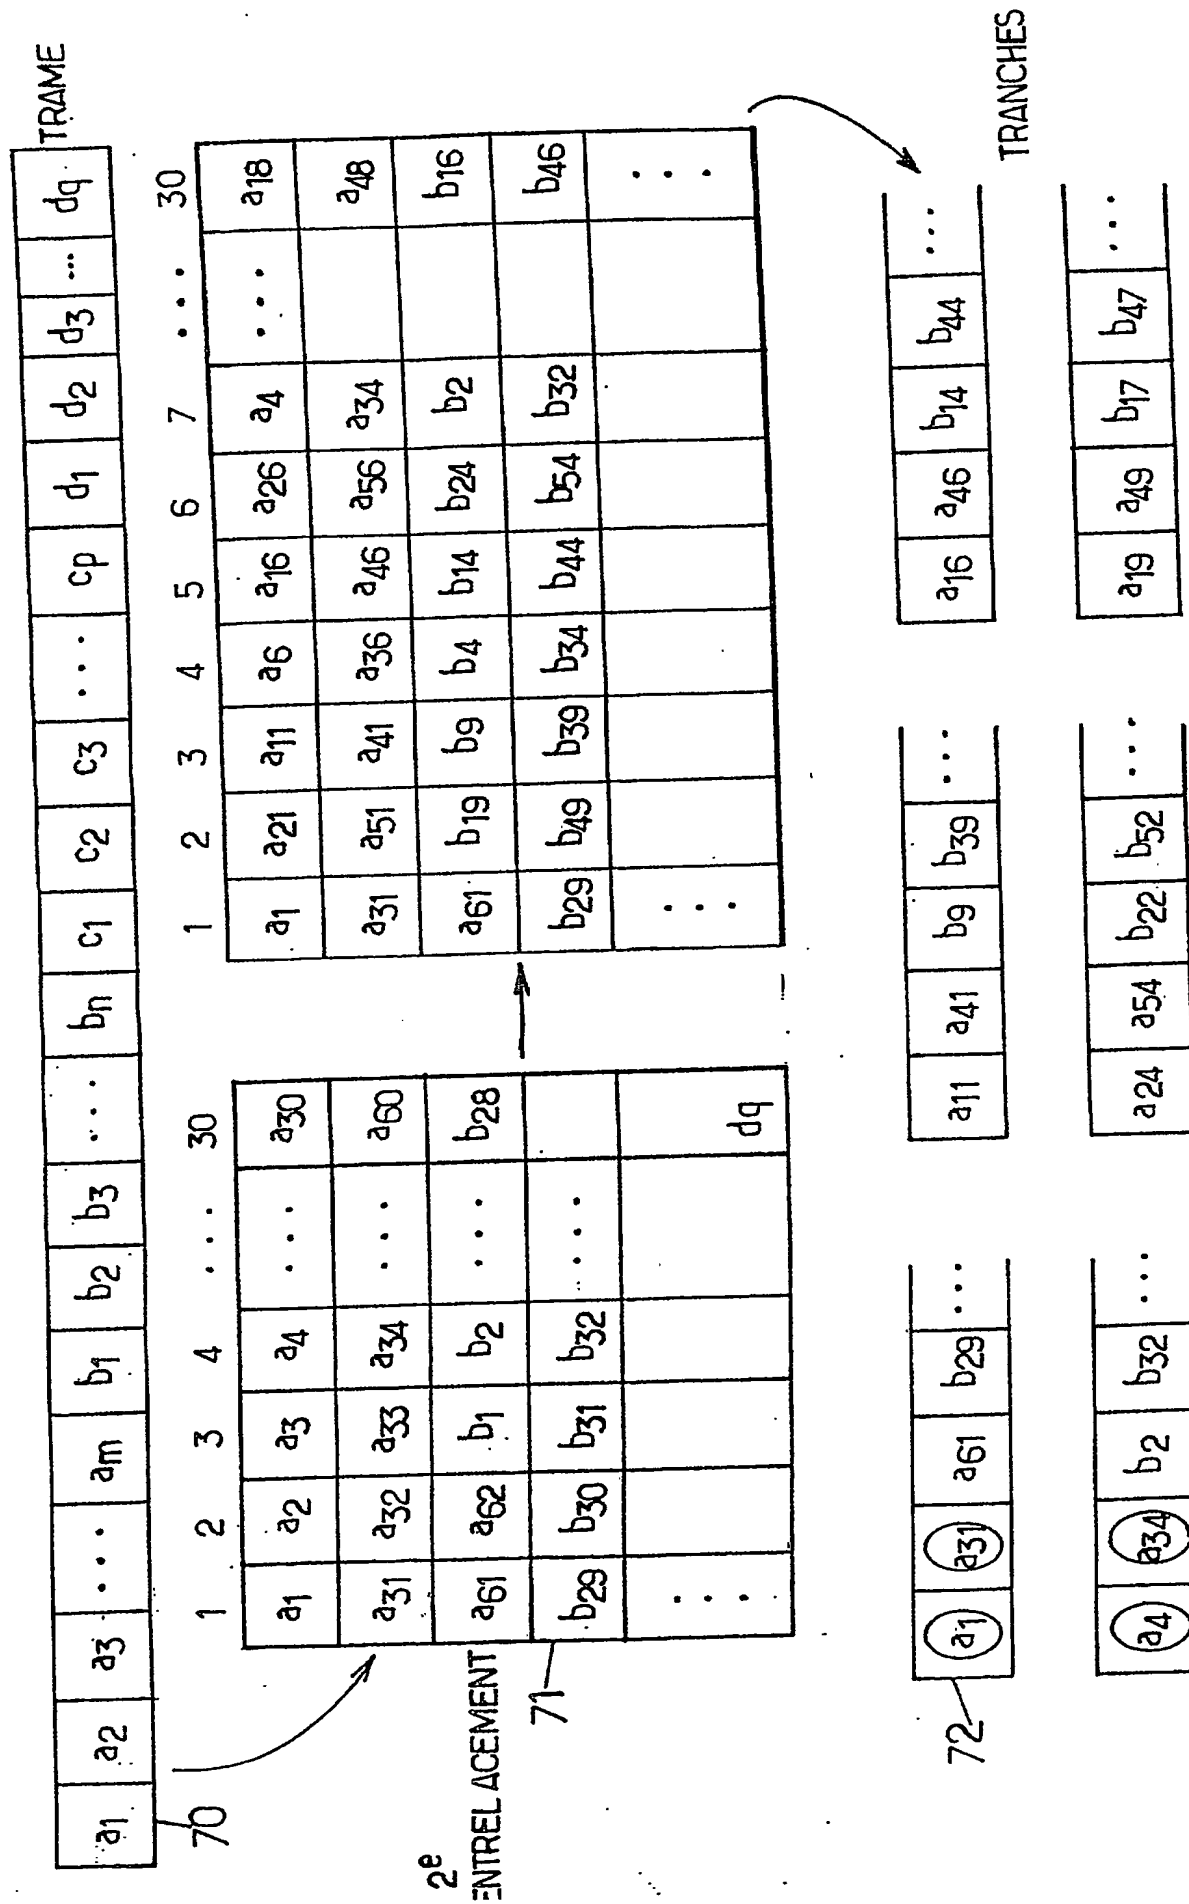 TRAME
a1 a2 a3 ... am b1 b2 b3 ... bn c1 c2 c3 ... cp d1 d2 d3 ... dq
70
2e
ENTRELACEMENT
1 2 3 4 ... 30
a1 a2 a3 a4 ... a30
a31 a32 a33 a34 ... a60
a61 a62 b1 b2 ... b28
b29 b30 b31 b32 ...
... dq
71
1 2 3 4 5 6 7 ... 30
a1 a21 a11 a6 a16 a26 a4 ... a18
a31 a51 a41 a36 a46 a56 a34 a48
a61 b19 b9 b4 b14 b24 b2 b16
b29 b49 b39 b34 b44 b54 b32 b46
... ...
TRANCHES
72
a1 a31 a61 b29 ...
a11 a41 b9 b39 ...
a16 a46 b14 b44 ...
a4 a34 b2 b32 ...
a24 a54 b22 b52 ...
a19 a49 b17 b47 ...